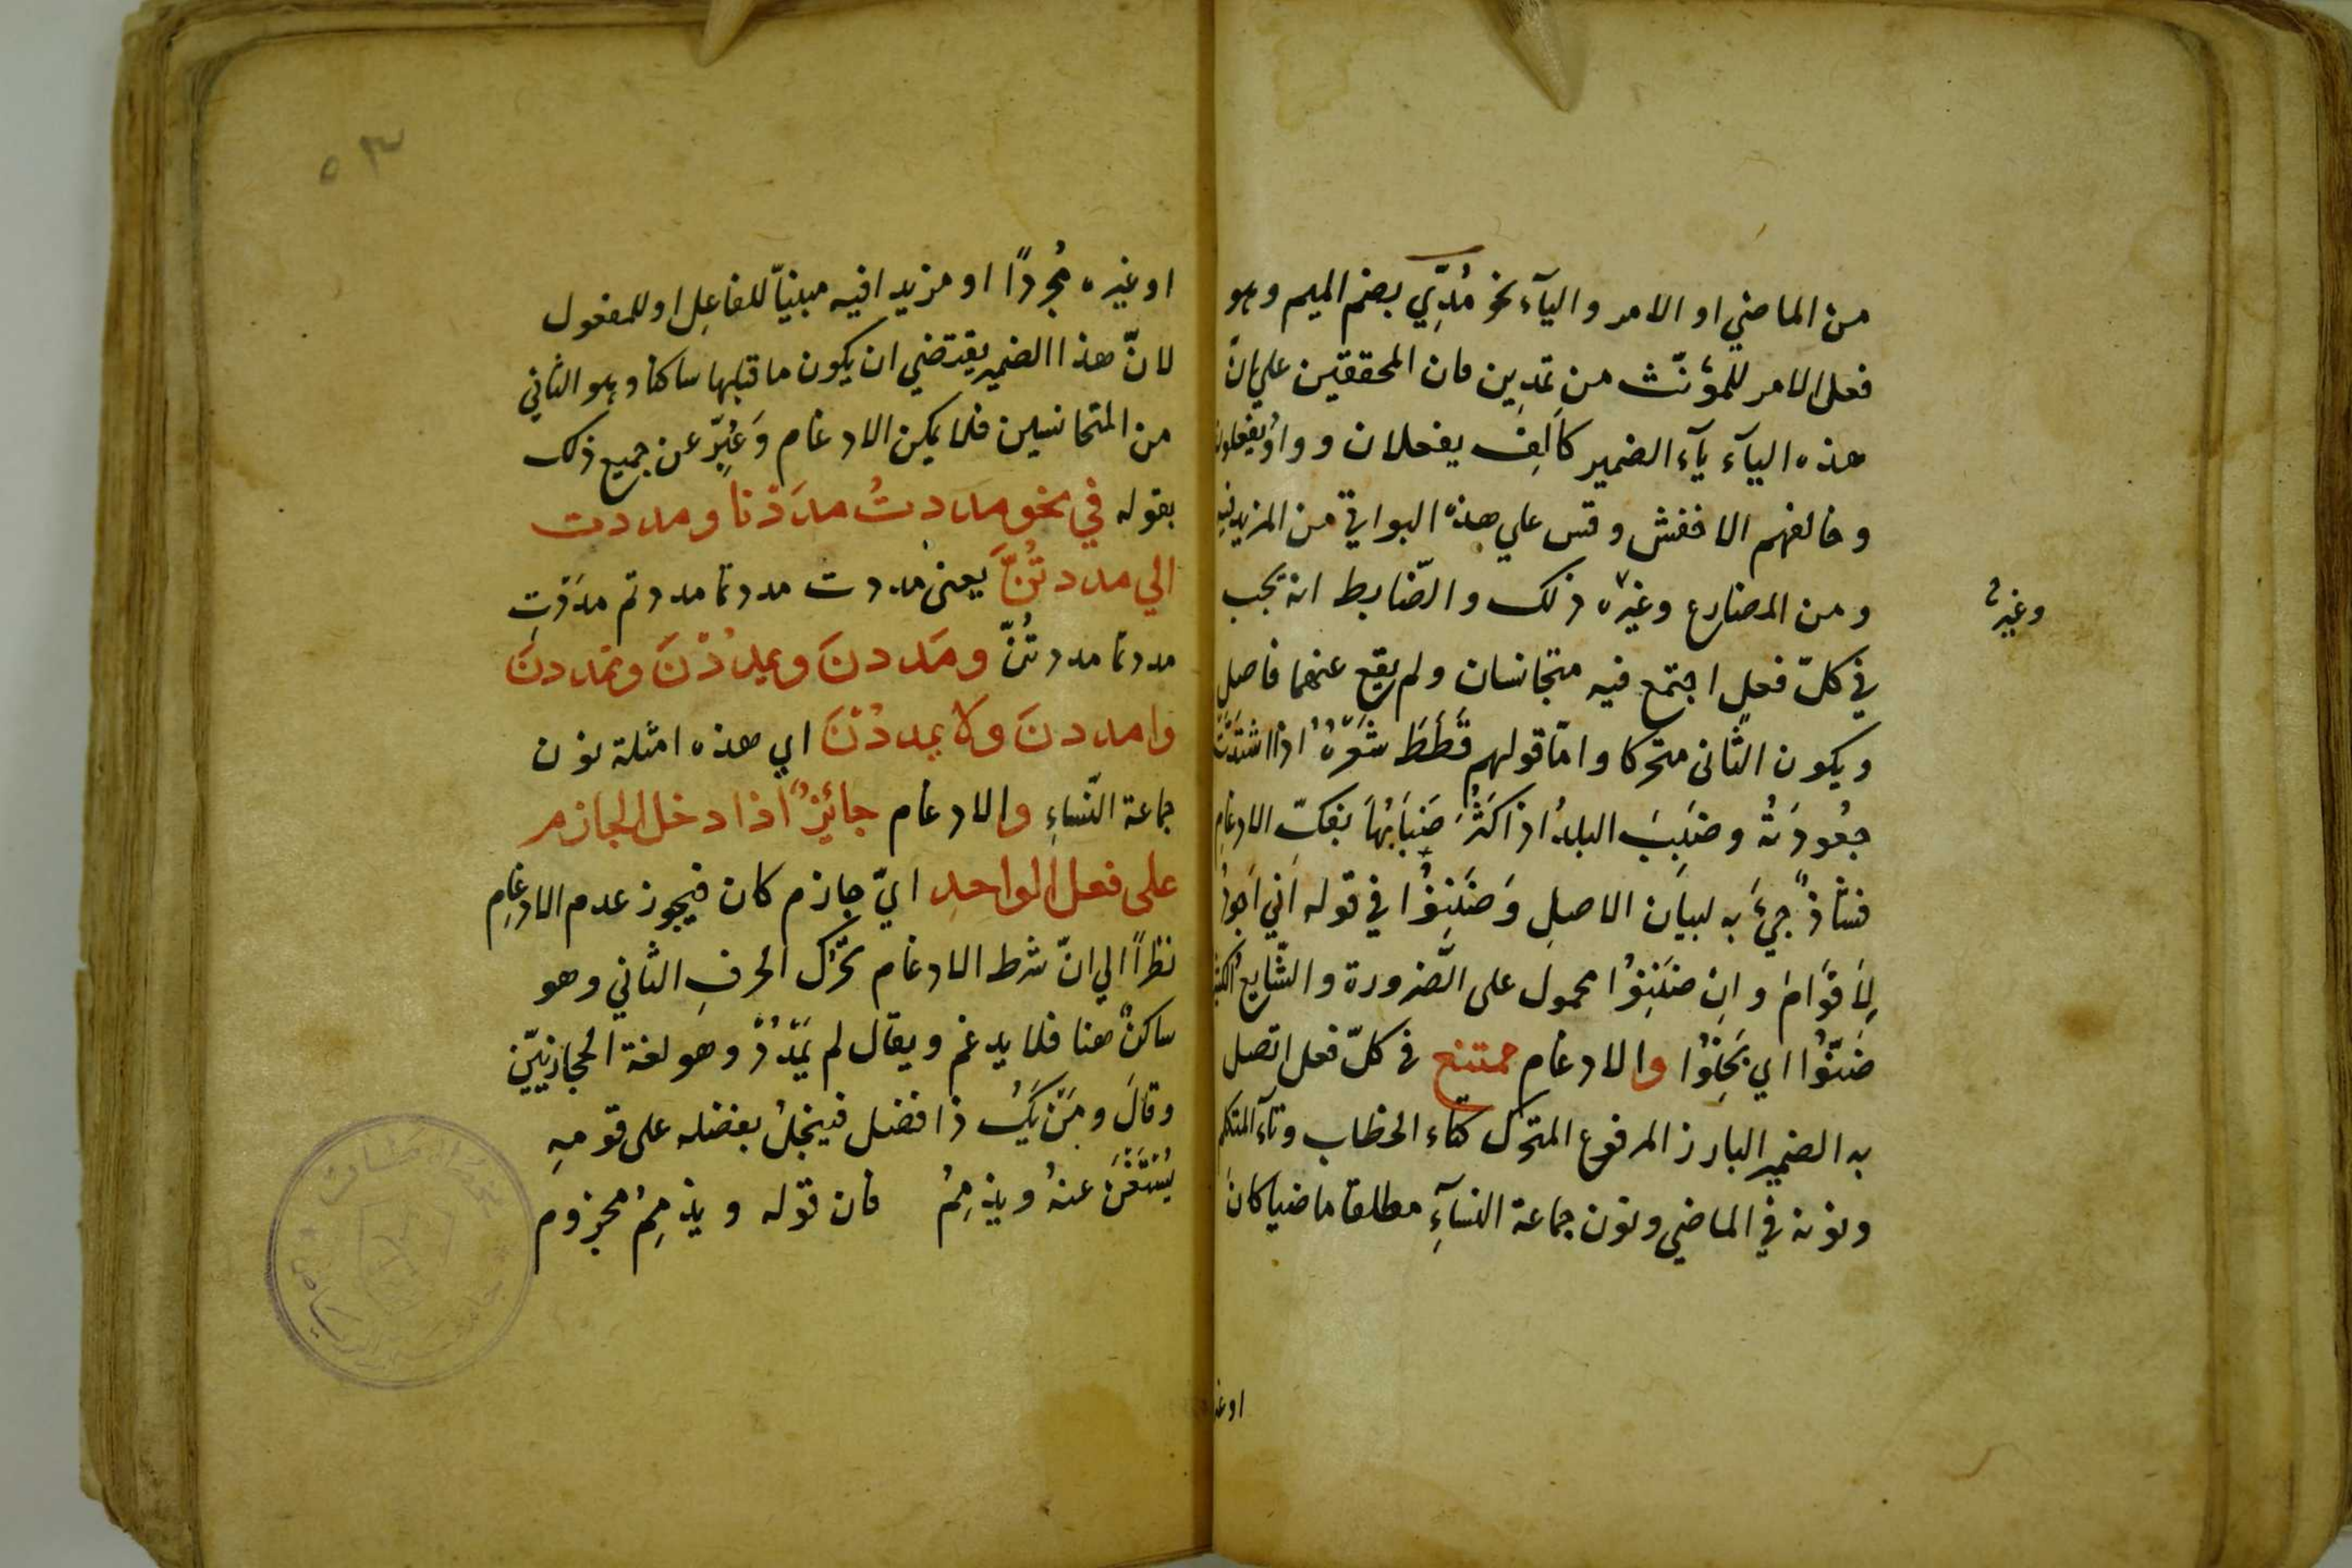 من الماضي او الامر واليآء نحو مُدِّي بضم الميم وهو
فعل الامر للمؤنّث من تمدين فان المحققين علي انّ
هذه اليآء يآء الضمير كاَلِف يفعلان وواوُ يفعلون
وخالفهم الاخفش وقس علي هذه البواقي من المزيد فيه
ومن المضارع وغيره ذلك والضّابط انه يجب
وغيره
في كلّ فعلٍ اجتمع فيه متجانسان ولم يقع عنهما فاصل
ويكون الثّاني متحرّكا وامّا قولهم قَطَطَ شَعَرُهُ اذا اشتدّت
جعُودَتُهُ وضَبِبَ البلدُ اذا كَثُرَ ضَبَابُهَا بفكّ الادغام
فشاذٌ جيءَ به لبيان الاصلِ وَضَنِنُوْا في قوله اَنّي اَجودُ
لِاَقوَامٍ وانِ ضَنِنُوْا محمول على الضّرورة والشّايع الكثير
ضَنّوُا اي بَخِلُوْا والادغام ممتنع في كلّ فعل اتّصل
به الضمير البارز المرفوع المتحرّك كتاء الخطاب وتآء المتكلم
ونونه في الماضي ونون جماعة النسآءِ مطلقا ماضيا كانَ
اوغير
٥٣
اوغيره مُجردًا او مزيدا فيه مبنيّاً للفاعِل او للمفعول
لانّ هذا الضمير يقتضي ان يكون ما قبلها ساكنا وهو الثاني
من المتجانسين فلا يمكن الادغام وَعُبِّرَ عن جميع ذلك
بقوله في نحو مددتُ مدَدْنا ومددت
الي مددتُنَّ يعنى مددت مددتما مددتم مدَدْتِ
مددتما مددتُنّ ومَددنَ ويمدُدْنَ وتمددنَ
وامددنَ ولا يمددُنَ اي هذه امثلة نون
جماعة النّساءِ والادغام جائِزٌ اذا دخل الجازم
على فعل الواحدِ ايّ جازم كان فيجوز عدم الادغامِ
نظرًا الي انّ شرط الادغام تحرّك الحرفِ الثاني وهو
ساكنٌ هنا فلا يدغم ويقال لم يَمْدُدْ وهو لغة الحجازييّن
وقالَ ومَنْ يَكُ ذا فضل فيبخلْ بفضله على قومهِ
يُسْتَغْنَ عنهُ ويذمِمُ فان قوله ويذمِمُ مجزوم